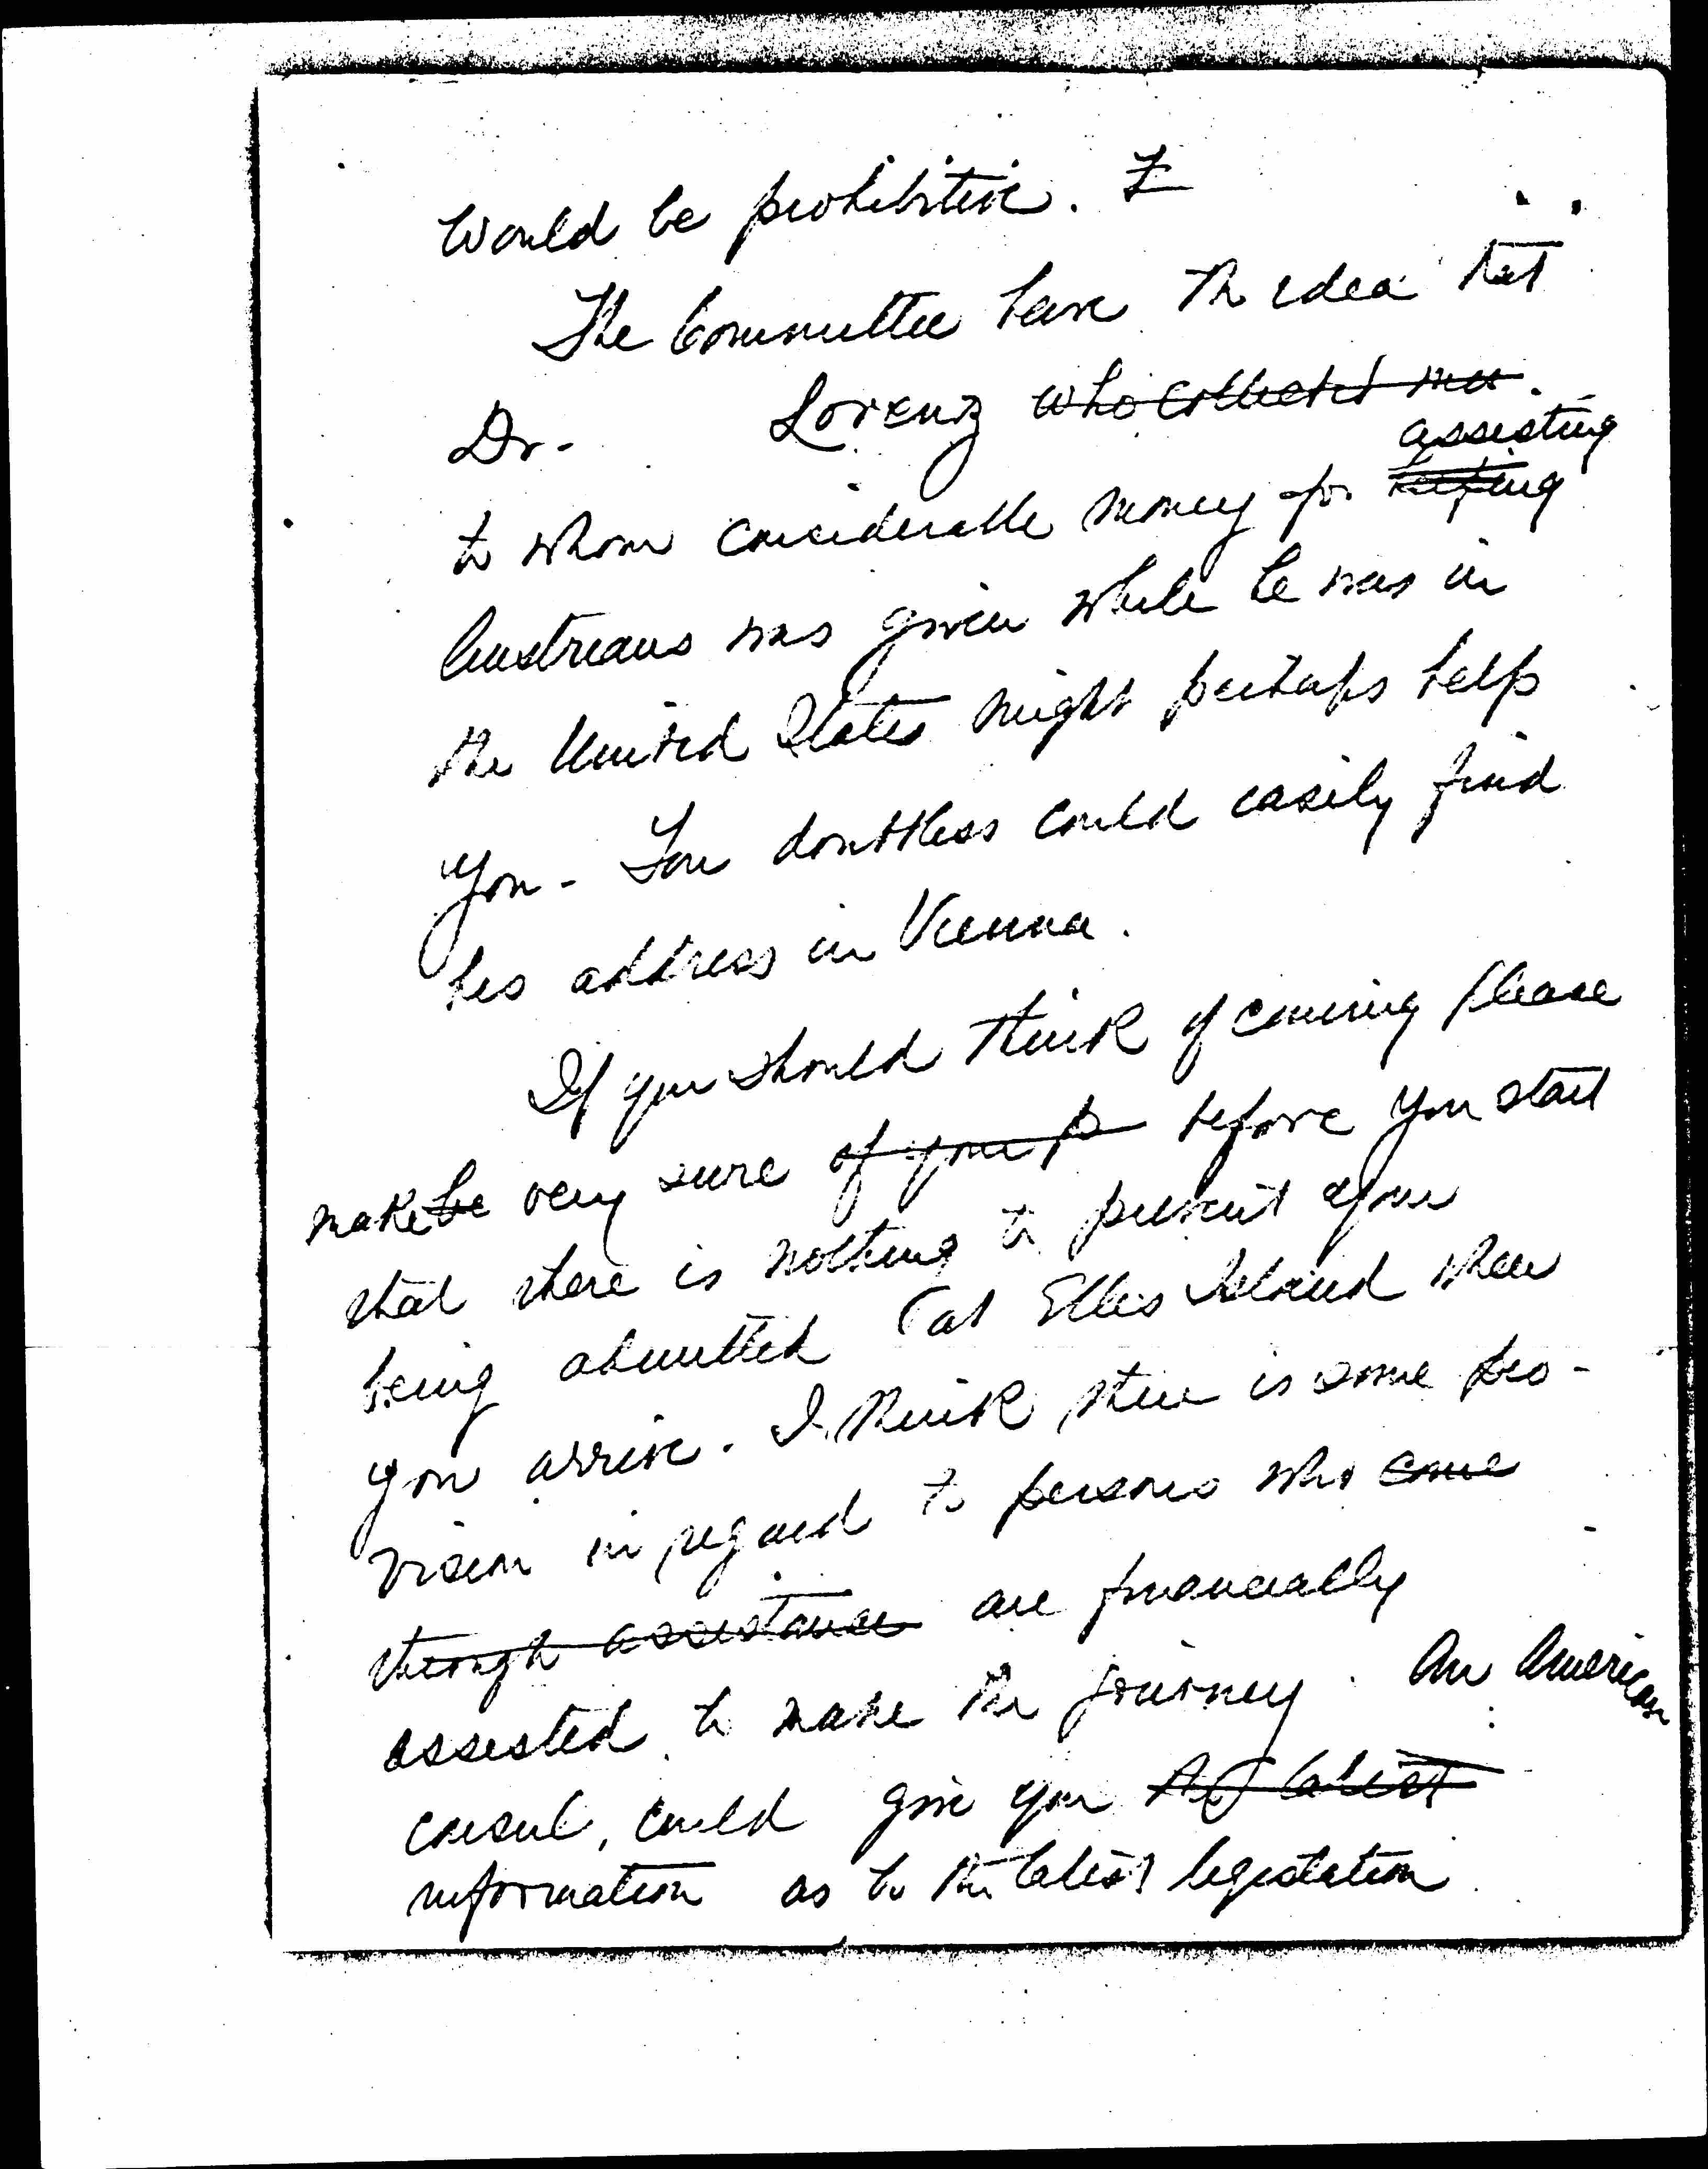 would be prohibitive. I
The Committee have the idea that
Dr. Lorenz who collected
assisting
to whom considerable money for helping
Austrians was given while he was in
the United States might perhaps help
you - You doubtless could easily find
his address in Vienna.
If you should think of coming please
make be very sure of your p before you start
that there is nothing to prevent your
being admitted (at Ellis Island when
you arrive. I think there is some pro-
vision in regard to persons who come
through assistance are financially
assisted to make the journey. An American
consul, could give you the latest
information as to the latest legislation